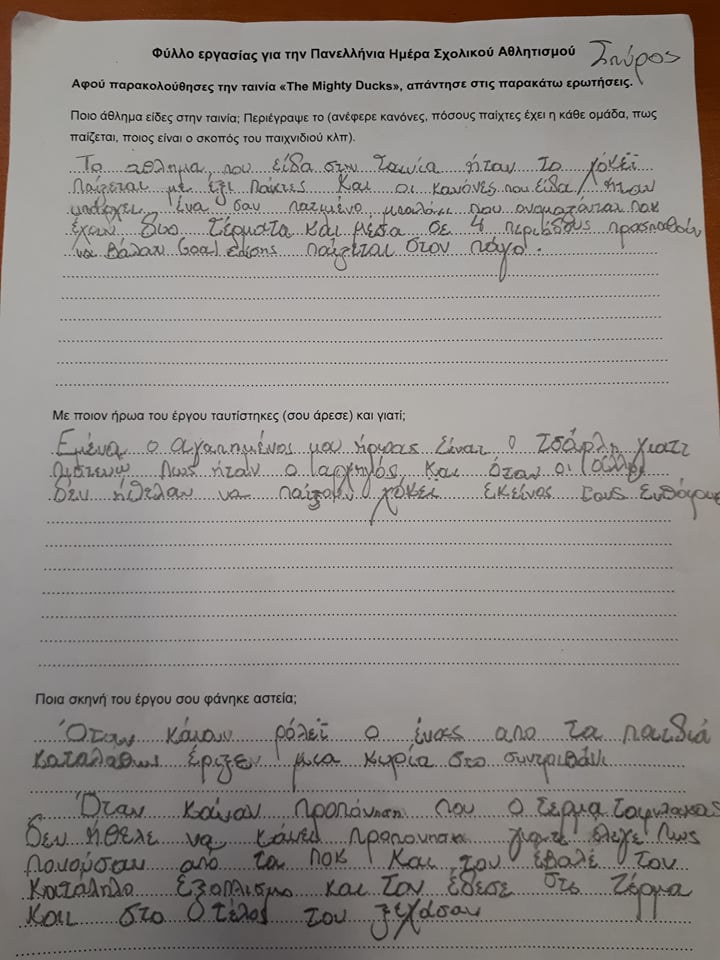 Φύλλο εργασίας για την Πανελλήνια Ημέρα Σχολικού Αθλητισμού
Σπύρος
Αφού παρακολούθησες την ταινία «The Mighty Ducks», απάντησε στις παρακάτω ερωτήσεις.
Ποιο άθλημα είδες στην ταινία; Περιέγραψε το (ανέφερε κανόνες, πόσους παίχτες έχει η κάθε ομάδα, πως
παίζεται, ποιος είναι ο σκοπός του παιχνιδιού κλπ).
Το αθλημα που είδα στην ταινία ήταν το χόκεϊ
παίζεται με έξι παίκτες και οι κανόνες που είδα ήταν
υπάρχει ένα σαν πατημένο μπαλάκι που ονομάζονται ποκ
έχουν δυο τέρματα και μέσα σε 4 περιόδους προσπαθούν
να βάλουν Goal επίσης παίζεται στον πάγο.
Με ποιον ήρωα του έργου ταυτίστηκες (σου άρεσε) και γιατί;
Εμένα ο αγαπημένος μου ήρωας είναι ο Τσάρλη γιατι
πιστευω πως ήταν ο αρχηγός και όταν οι άλλοι
δεν ήθελαν να παίξουν χόκει εκείνος τους
Ποια σκηνή του έργου σου φάνηκε αστεία;
Όταν κάναν ρόλεϊ ο ένας απο τα παιδιά
καταλαθως έριξεν μια κυρία στο συντριβάνι
Όταν κάναν προπόνηση που ο τερματοφυλακας
δεν ήθελε να κάνει προπονηση γιατι έλεγε πως
πονούσαν απο τα ποκ και του έβαλέ τον
κατάληλο εξοπλισμο και τον έδεσε στο τέρμα
και στο τέλος τον ξεχάσαν